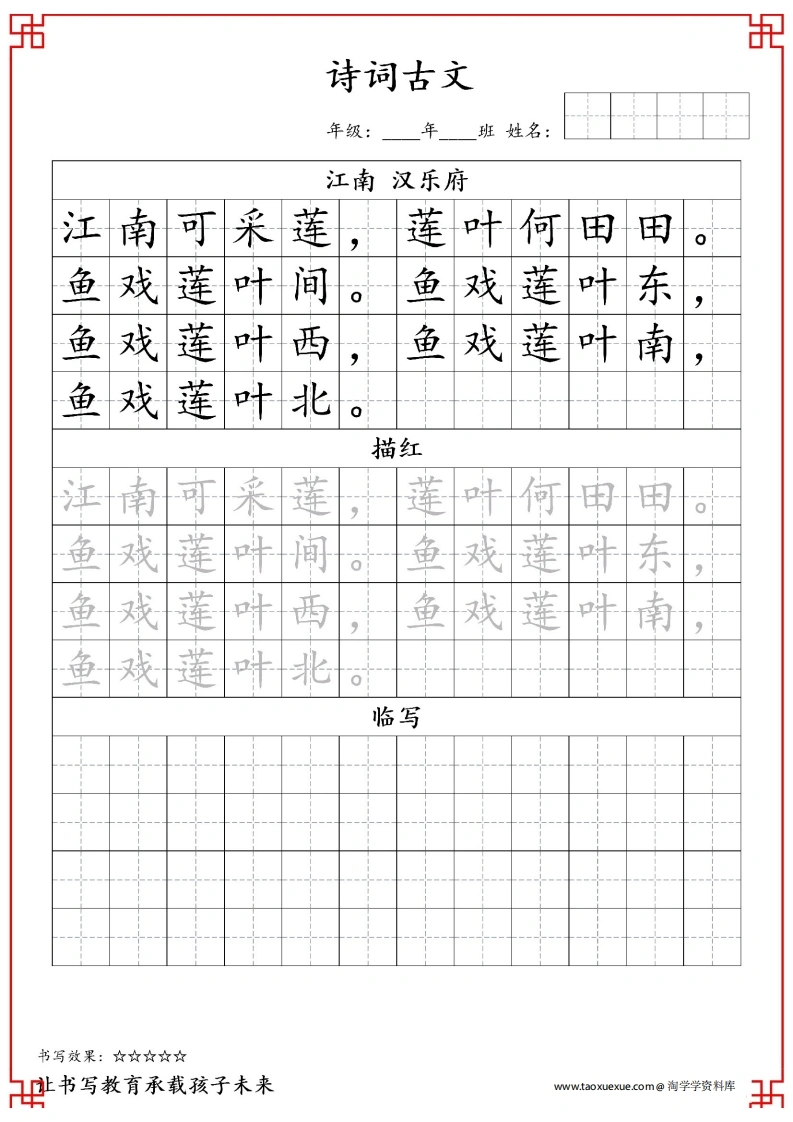 诗词古文
年级：____年____班 姓名：
江南 汉乐府
江南可采莲，莲叶何田田。
鱼戏莲叶间。鱼戏莲叶东，
鱼戏莲叶西，鱼戏莲叶南，
鱼戏莲叶北。
描红
江南可采莲，莲叶何田田。
鱼戏莲叶间。鱼戏莲叶东，
鱼戏莲叶西，鱼戏莲叶南，
鱼戏莲叶北。
临写
书写效果：☆☆☆☆☆
让书写教育承载孩子未来
www.taoxuexue.com@淘学学资料库